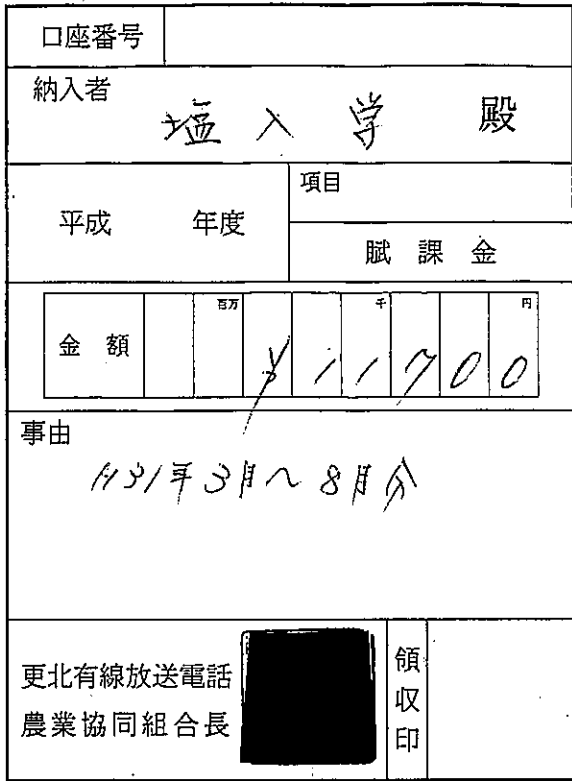 口座番号
納入者
塩入学 殿
平成 年度
項目
賦課金
金額 百万 千 円
¥11700
事由
H31年3月～8月分
更北有線放送電話
農業協同組合長
領収印